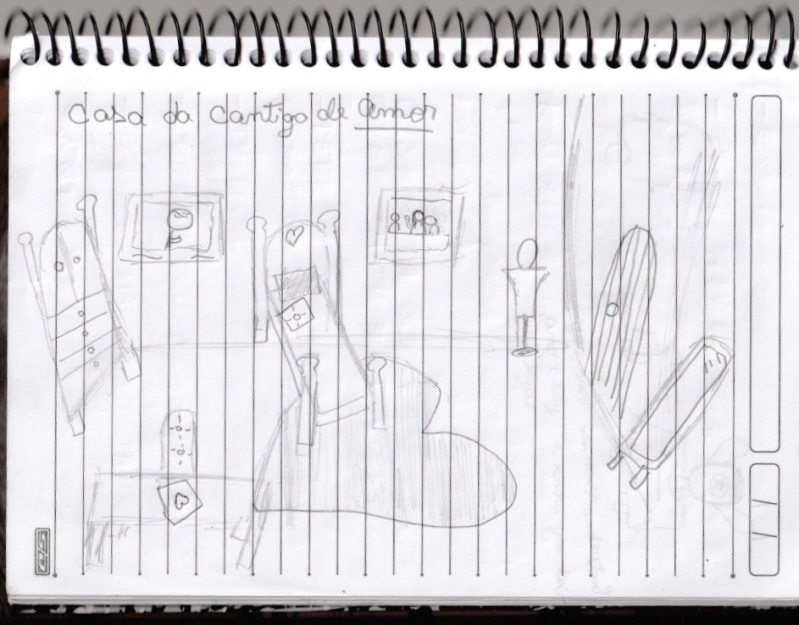 Casa da Cantiga de Amor